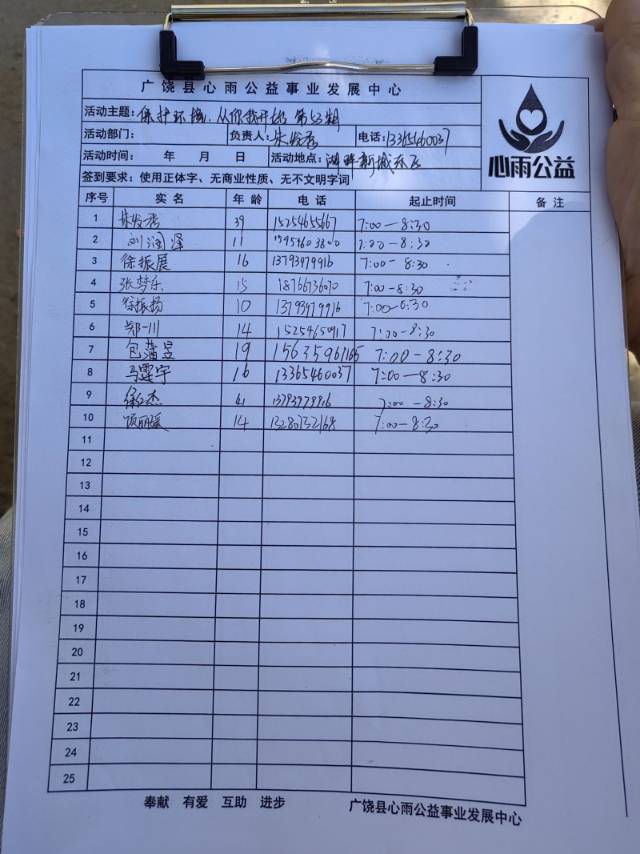 广饶县心雨公益事业发展中心
活动主题：保护环境，从你我开始 第53期
活动部门： 负责人：朱发秀 电话：13365460037
活动时间： 年 月 日 活动地点：湖畔新城东区
签到要求：使用正体字、无商业性质、无不文明字词
心雨公益
序号 实名 年龄 电话 起止时间 备注
1 39 15254655667 7:00-8:30
2 刘润泽 11 7:00-8:30
3 徐振展 16 13793979916 7:00-8:30
4 张梦乐 15 18766736070 7:00-8:30
5 徐振扬 10 13793979916 7:00-8:30
6 郑一川 14 15254650917 7:00-8:30
7 包蒲昱 19 15635961165 7:00-8:30
8 马霆宇 16 13365460037 7:00-8:30
9 41 13793979916 7:00-8:30
10 14 13280732168 7:00-8:30
11
12
13
14
15
16
17
18
19
20
21
22
23
24
25
奉献 有爱 互助 进步 广饶县心雨公益事业发展中心